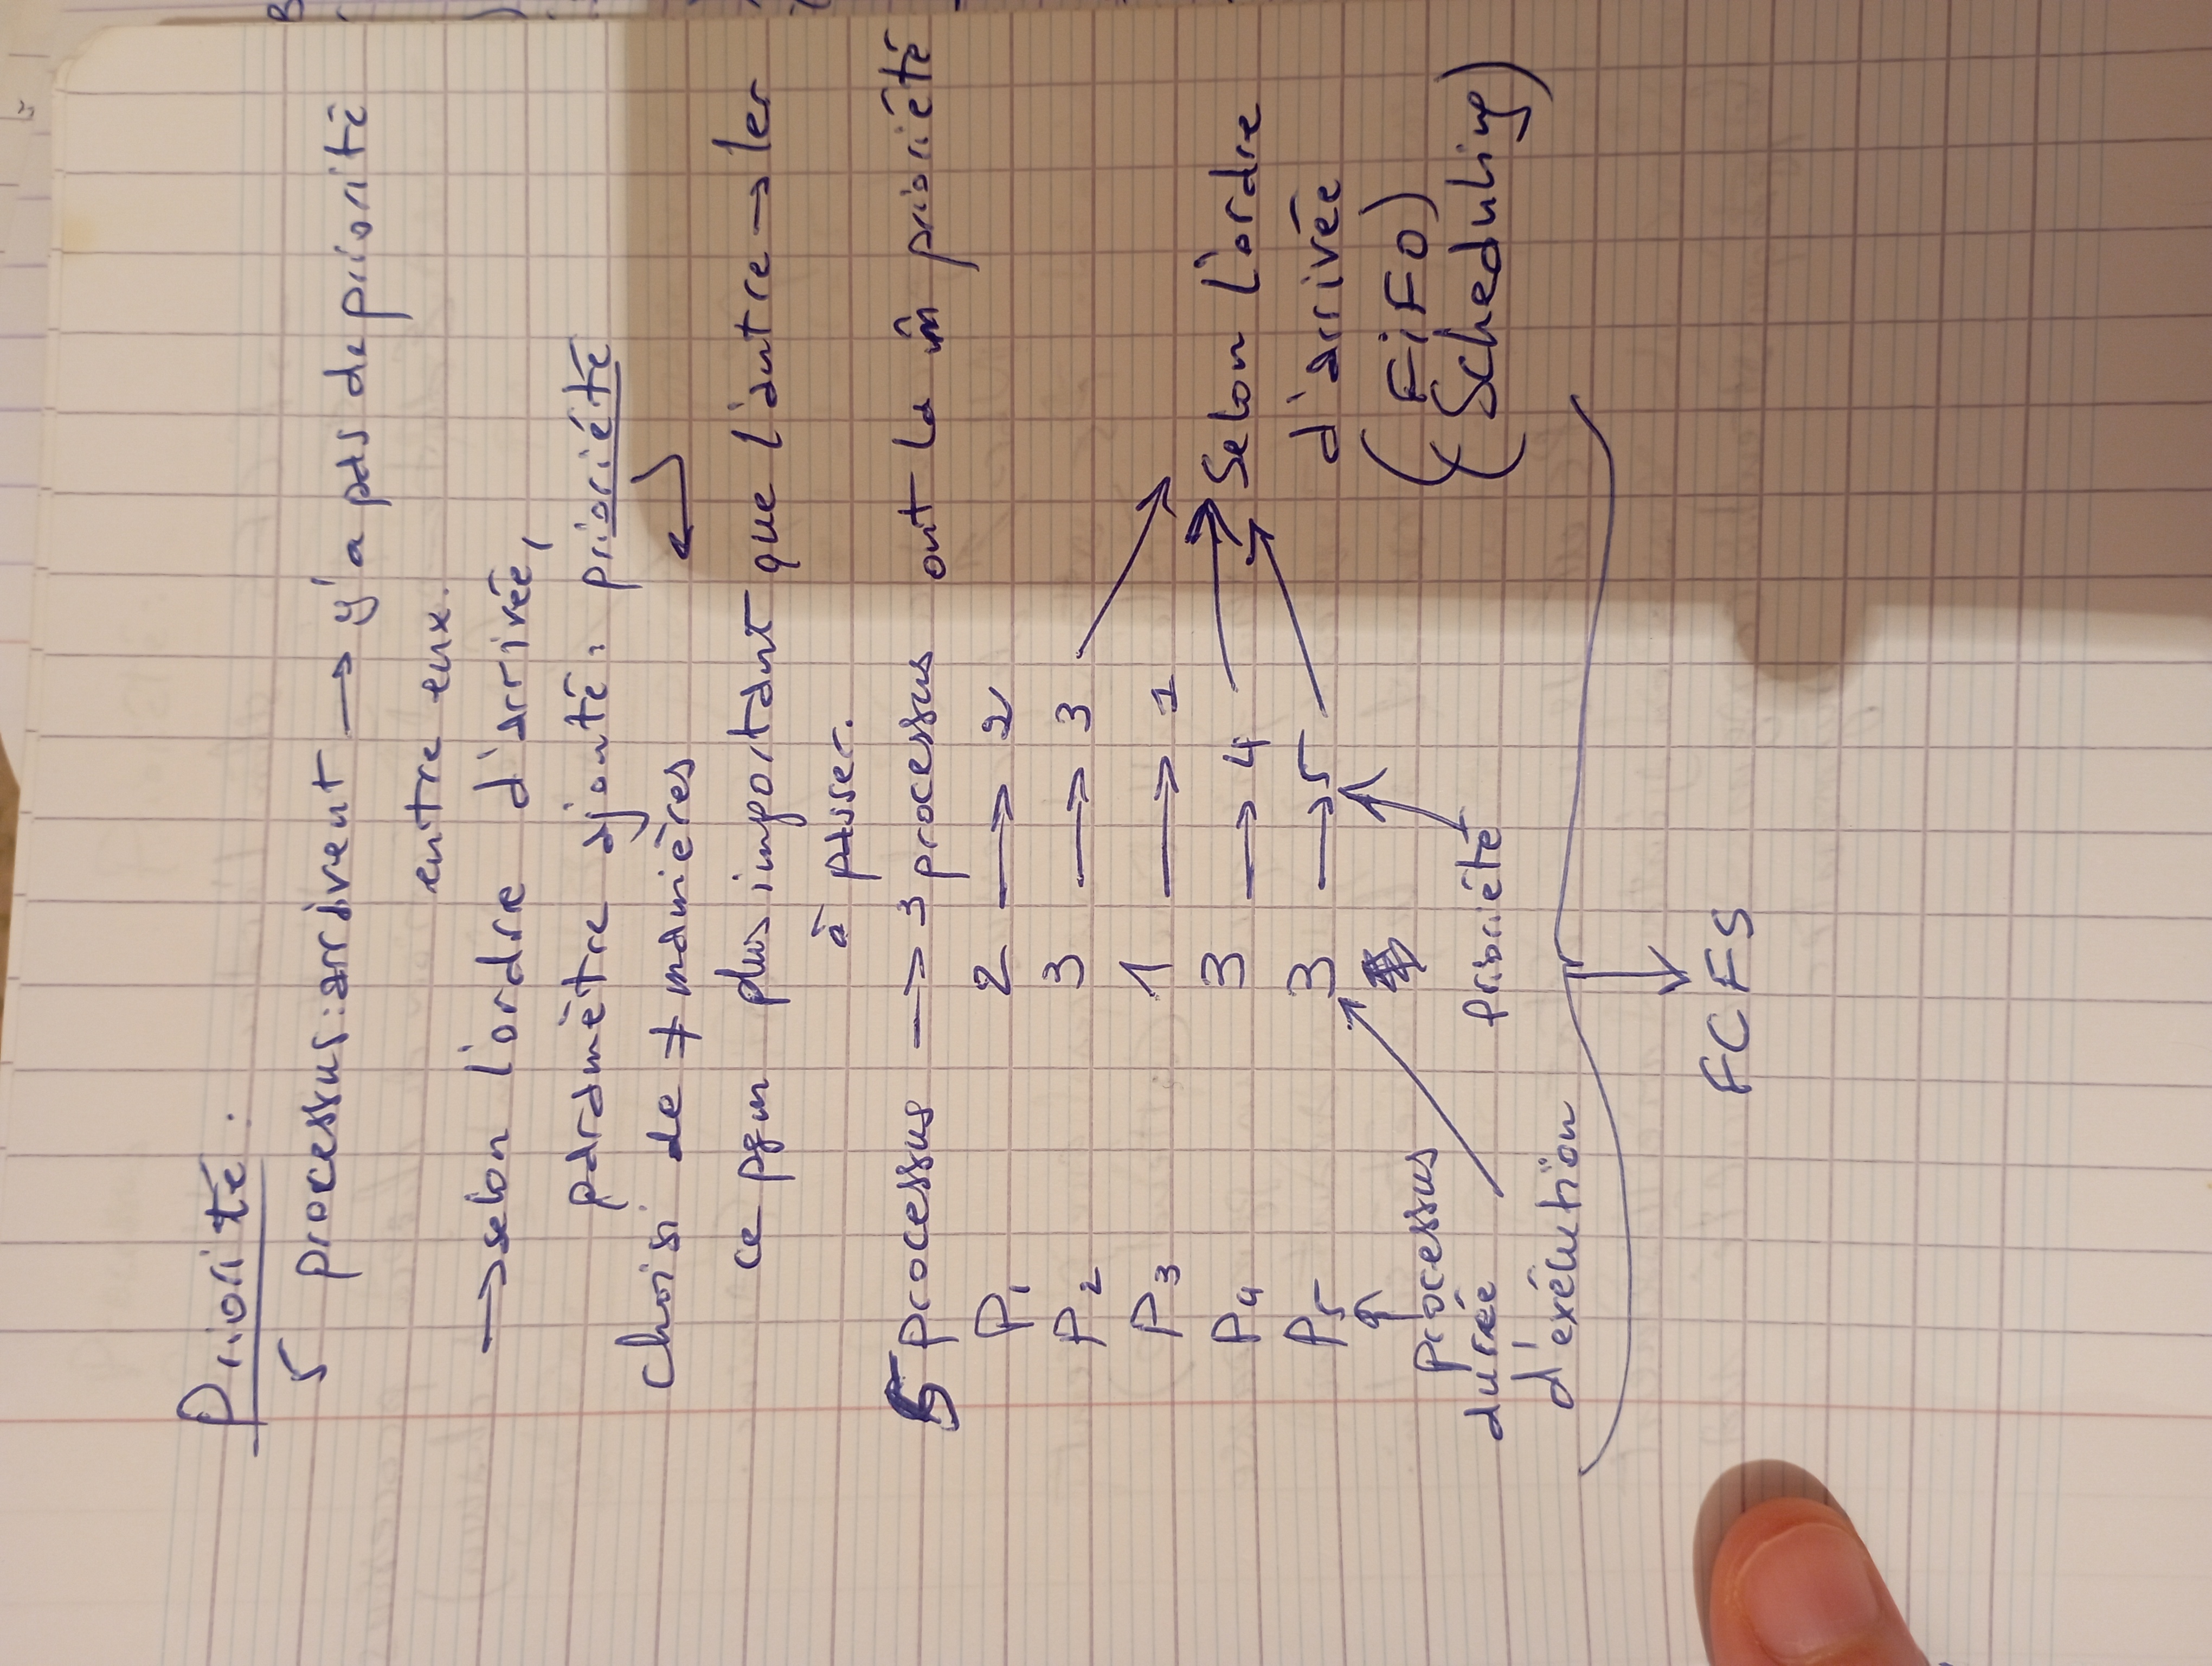 Priorité :
5 processus : arrivent → y'a pas de priorité
entre eux.
→ selon l'ordre d'arrivée,
paramètre ajouté : prioriété
choisi de ≠ manières
ce pgm plus important que l'autre → 1er
à passer.
5 processus → 3 processus ont la m̂ prioriété
P1 2 → 2
P2 3 → 3
P3 1 → 1
P4 3 → 4
P5 3 → 5
Selon l'ordre
d'arrivée
(FiFo)
(Scheduling)
processus
durée
d'exécution
prioriété
FCFS